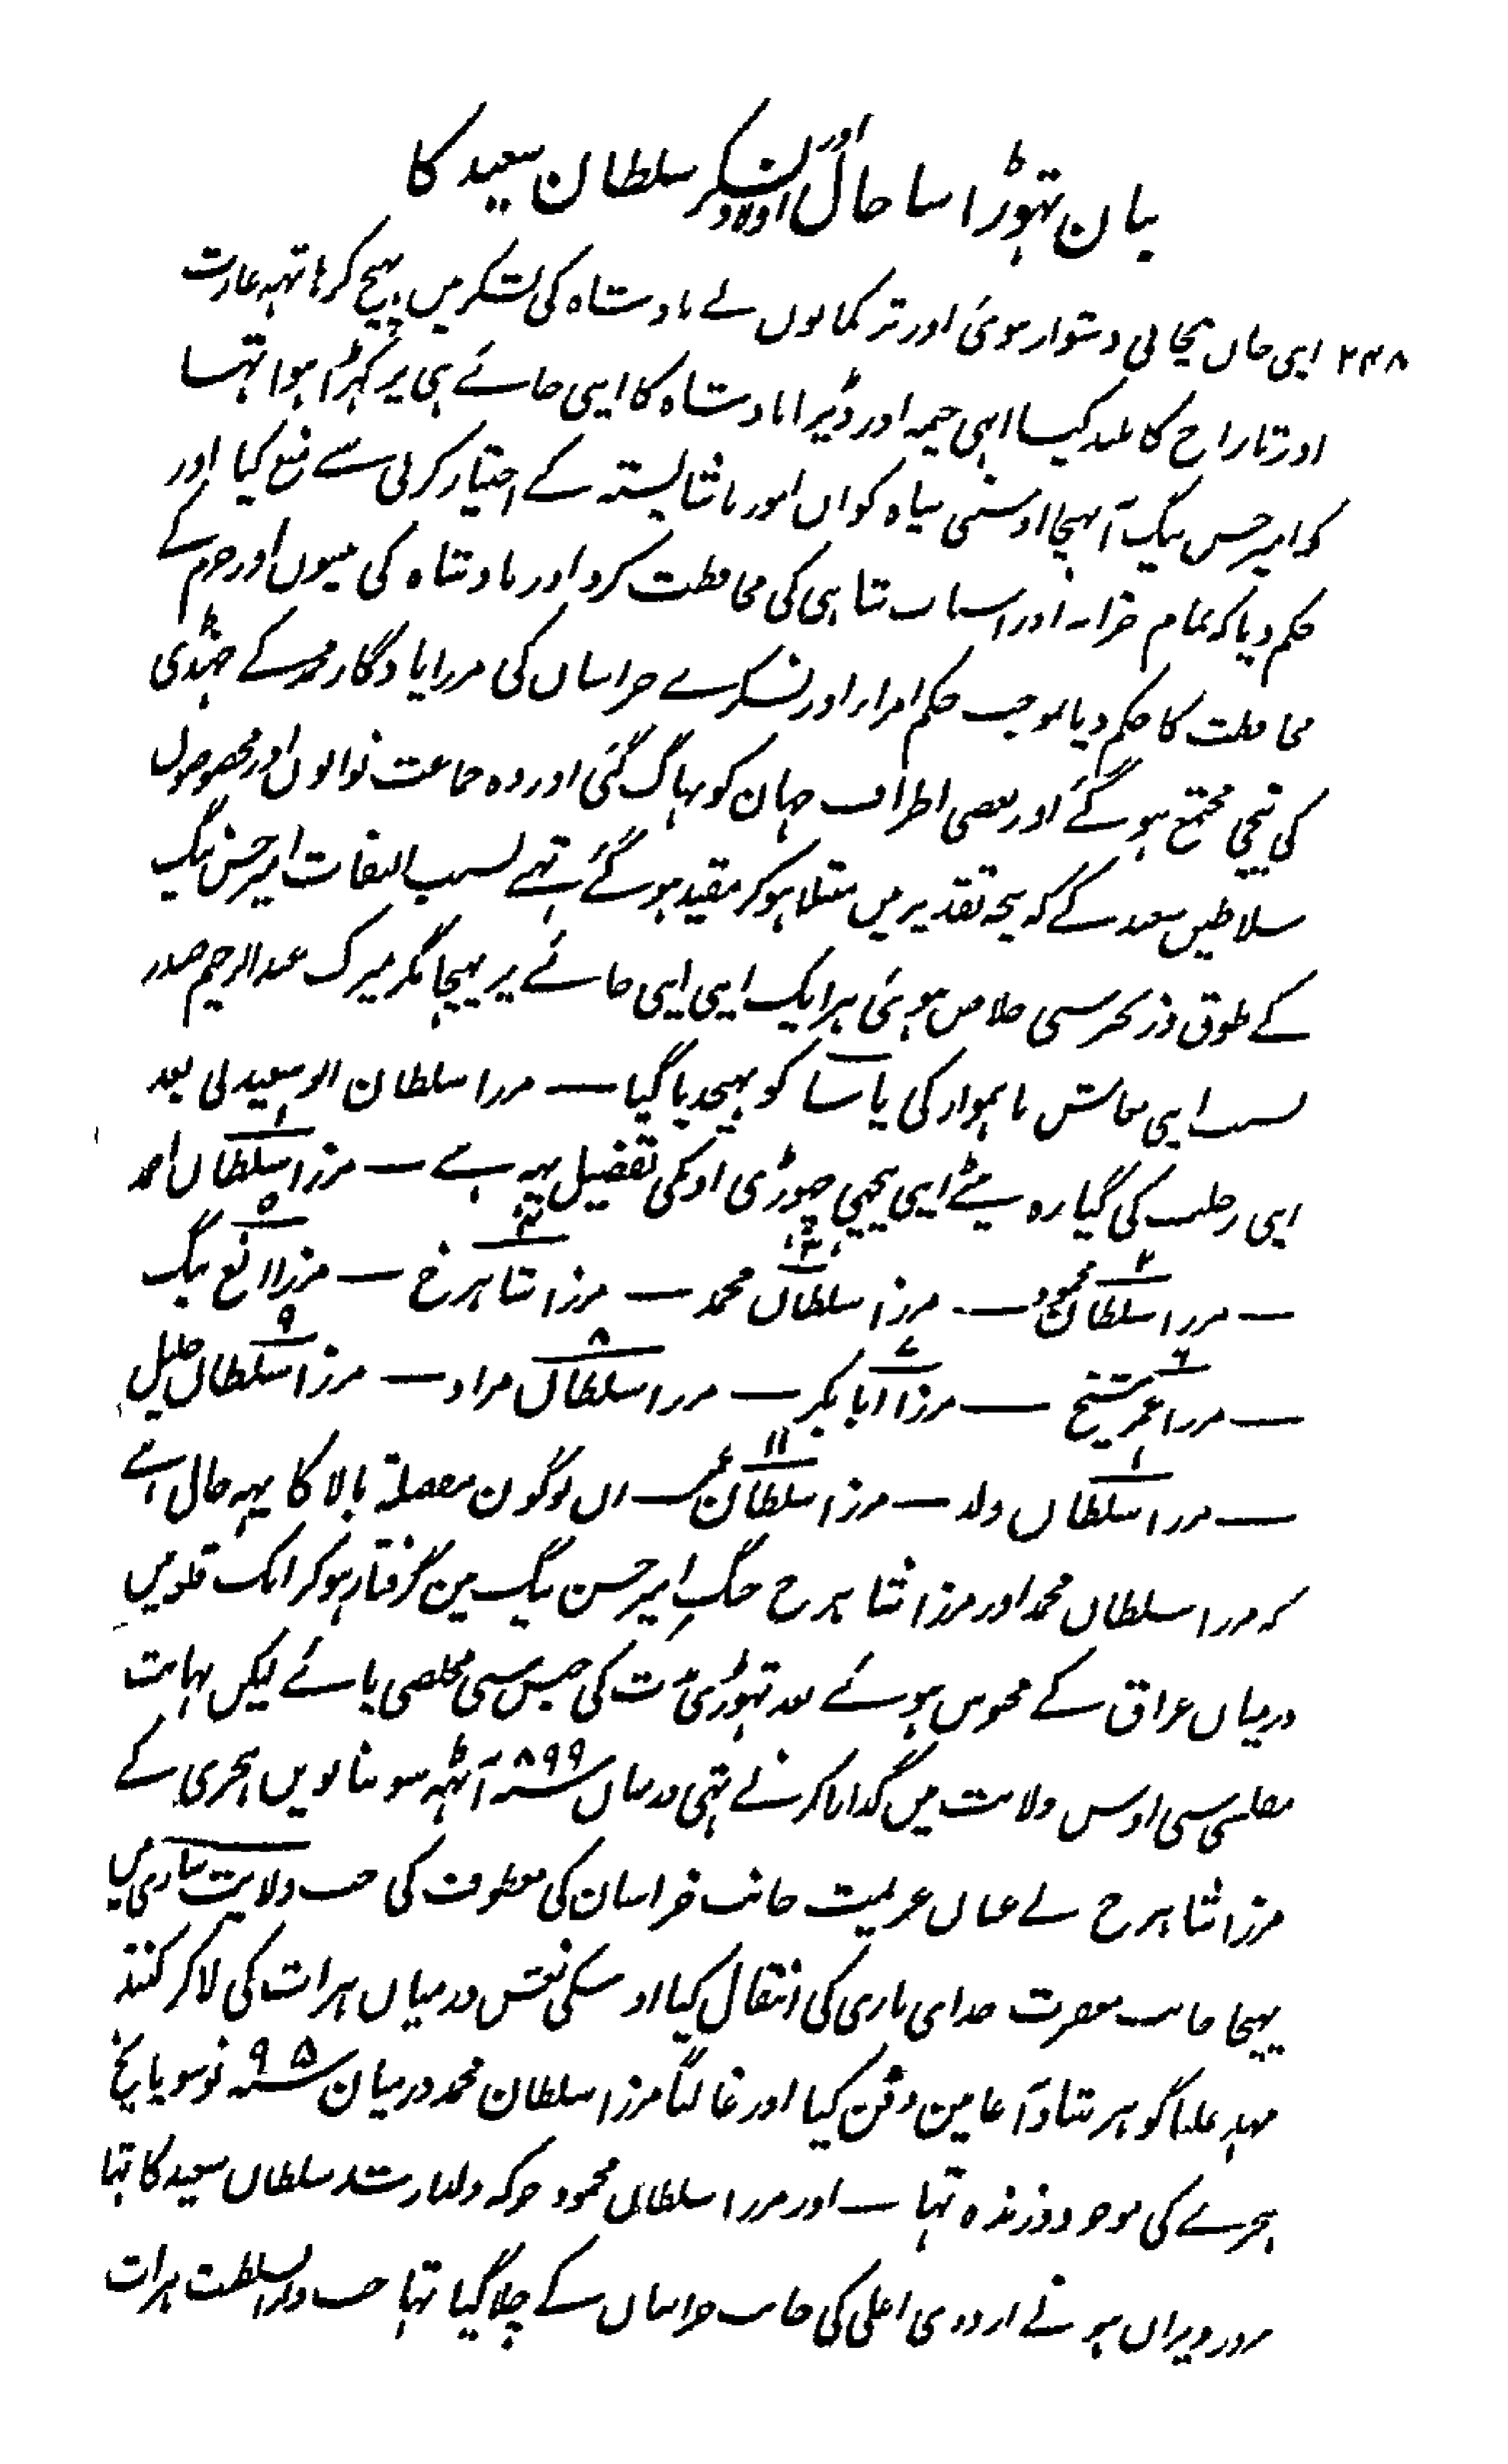 بیان تہوڑا سا حال اولاد اور لشکر سلطان سعید کا
۲۴۸ اپنی جان بچانی دشوار ہوئی اور ترکمانوں نے بادشاہ کی لشکر میں پہنچ کر ہاتہہ غارت
اور تاراج کا بلند کیا ابہی خیمہ اور ڈیرا بادشاہ کا اپنی جائے ہی پر کہڑا ہوا تہا
کہ امیر حسن بیگ آ پہنچا اوسنی سپاہ کو ان امور ناشایستہ کے اختیار کرنی سے منع کیا اور
حکم دیا کہ تمام خزانہ اور اسباب شاہی کی محافظت کرو اور بادشاہ کی بیبیوں اور حرم کے
محافظت کا حکم دیا بموجب حکم امرا اور لشکرے خراسان کی مرزا یادگار محمد کے جہنڈی
کی نیچی مجتمع ہو گئے اور بعضی اطراف جہان کو بہاگ گئی اور وہ جماعت نوابوں اور مخصوصوں
سلاطین سعید کے کہ پنجہ تقدیر میں مبتلا ہو کر مقید ہو گئے تہے بسبب التفات امیر حسن بیگ
کے طوق و زنجیر سی خلاص ہوئی ہر ایک اپنی اپنی جائے پر پہنچا مگر میرک عبدالرحیم صدر
بسبب اپنی معاش ناہموار کی یاسا کو پہیجدیا گیا — مرزا سلطان ابو سعید نی بعد
اپنی رحلت کی گیارہ بیٹے اپنی پیچہی چہوڑی اونکی تفصیل یہہ ہے — مرزا سلطان احمد ۱
— مرزا سلطان محمود ۲ — مرزا سلطان محمد ۳ — مرزا شاہرخ ۴ — مرزا الغ بیگ ۵
— مرزا عمر شیخ ۶ — مرزا ابابکر ۷ — مرزا سلطان مراد ۸ — مرزا سلطان خلیل ۹
— مرزا سلطان ولد ۱۰ — مرزا سلطان عمر ۱۱ — ان لوگون مفصلہ بالا کا یہہ حال ہے
کہ مرزا سلطان محمد اور مرزا شاہرخ جنگ امیر حسن بیگ مین گرفتار ہو کر ایک قلعہ میں
درمیان عراق کے محبوس ہوئے بعد تہوڑی مدت کی حبس سی مخلصی پائے لیکن نہایت
مفلسی سی اوس ولایت میں گذارا کرتے تہی درمیان سنہ ۸۹۹ آٹہہ سو ننانویں ہجری کے
مرزا شاہرخ نے عنان عزیمت جانب خراسان کی معطوف کی جب ولایت ساری میں
پہنچا جانب مغفرت خدای باری کی انتقال کیا اوسکی نعش درمیان ہرات کی لاکر گنبذ
مہد علیا گوہر شاد آغا مین دفن کیا اور غالباً مرزا سلطان محمد درمیان سنہ ۹۰۵ نو سو پانچ
ہجرے کی موجود و زندہ تہا — اور مرزا سلطان محمود جو کہ ولد ارشد سلطان سعید کا تہا
بروز ویران ہونے اردوی اعلی کی جانب خراسان کے چلا گیا تہا جب دارالسلطنت ہرات